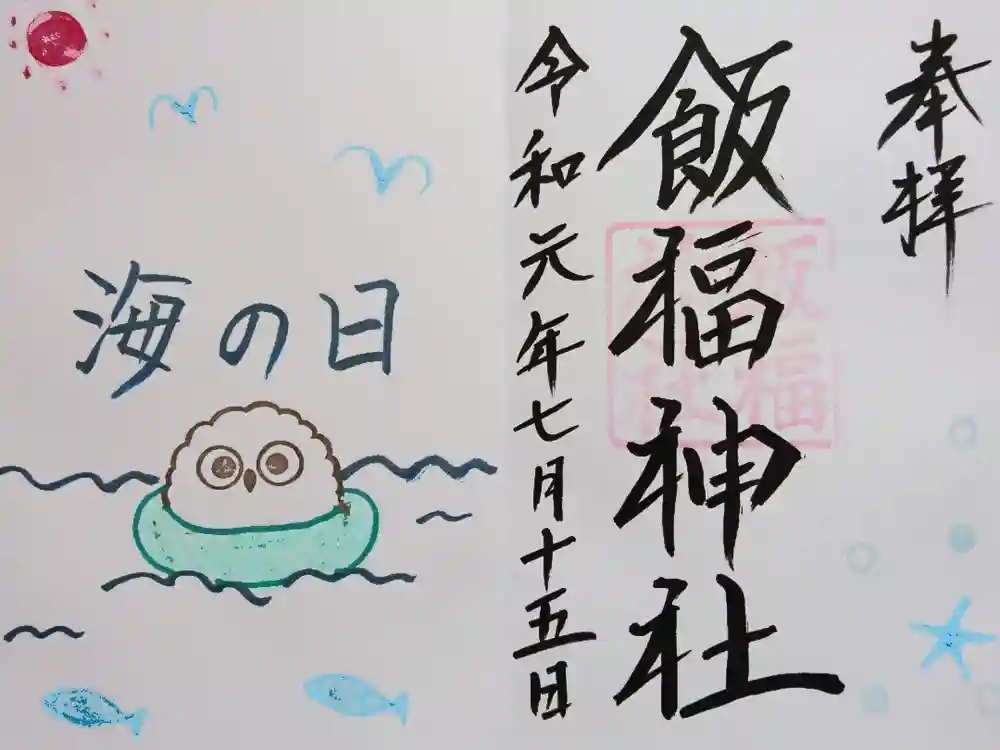 奉拝
飯福神社
令和元年七月十五日
海の日
飯福
神社